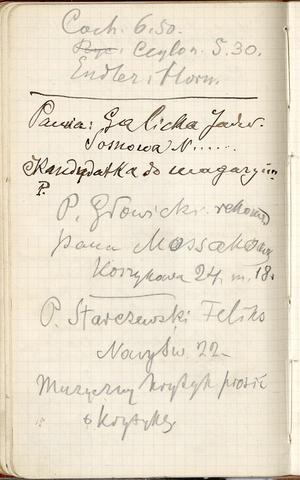 Coch. 6.50.
Ryc. Ceylon. 5.30.
Endler i Horn.
Pawia: Galicka Jadw.
Sosnowa N......
Kandydatka do magazyn
P.
P. Głowicki rekom
pana Mossakow
Koszykowa 24, m. 18.
P. Starczewski Feliks
Nowy Św. 22-
Muzyczny krytyk prosić
o krytykę.